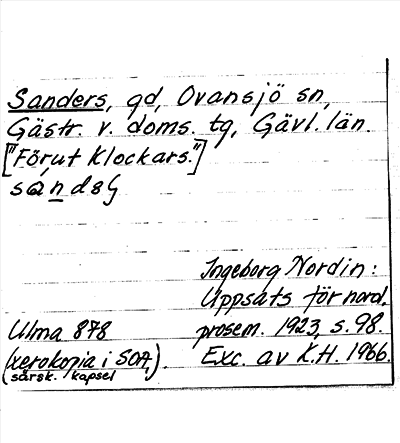 Sanders, gd, Ovansjö sn,
Gästr. v. doms. tg, Gävl. län.
["Förut Klockars."]
Ingeborg Nordin:
Uppsats för nord.
Ulma 878 prosem. 1923, s. 98.
(xerokopia i SOA, särsk. kapsel). Exc. av K.H. 1966.